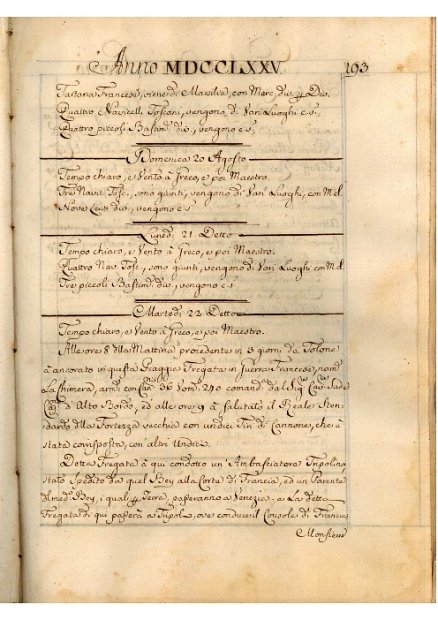 Anno MDCCLXXV. 193
Tartana Francesa, viene di Marsilia, con Merc. div.
Quattro Navicelli Toscani, vengono di Vari Luoghi e s.
Quattro piccoli Bastim. div., vengono e s.
Domenica 20 Agosto
Tempo chiaro, e Vento à Greco, e poi Maestro.
Tre Navic. Tosc., sono giunti, vengono di Vari Luoghi, con M. d.
Nove Leuti div., vengono e s
Lunedì 21 Detto
Tempo chiaro, e Vento à Greco, e poi Maestro.
Quattro Nav. Tosc., sono giunti, vengono di Vari Luoghi con M. d.
Tre piccoli Bastim. div., vengono e s
Martedì 22 Detto
Tempo chiaro, e Vento à Greco, e poi Maestro.
Alle ore 8 della Mattina procedente in 3 giorni da Tolone
à ancorato in questa Piaggia Fregata in Guerra Francese, nom.
La Chimera, arm. con Can. 36 Vom. 290 comand. dal Sig. Cav.
Cap. d'Alto Bordo, ed alle ore 9 à salutato il Reale Sten-
dardo della Fortezza vecchia con undici Tiri di Cannone, che è
stata corrisposta, con altri Undici.
Detta Fregata à qui condotto un' Ambasciatore Tripolino
stato spedito da quel Bey alla Corte di Francia, ed un Parente
d. med. Bey, i quali p. Terra, passeranno a Venezia, e La detta
Fregata di qui passerà a Tripol., ove conduce il Console di Francia
Monsieur